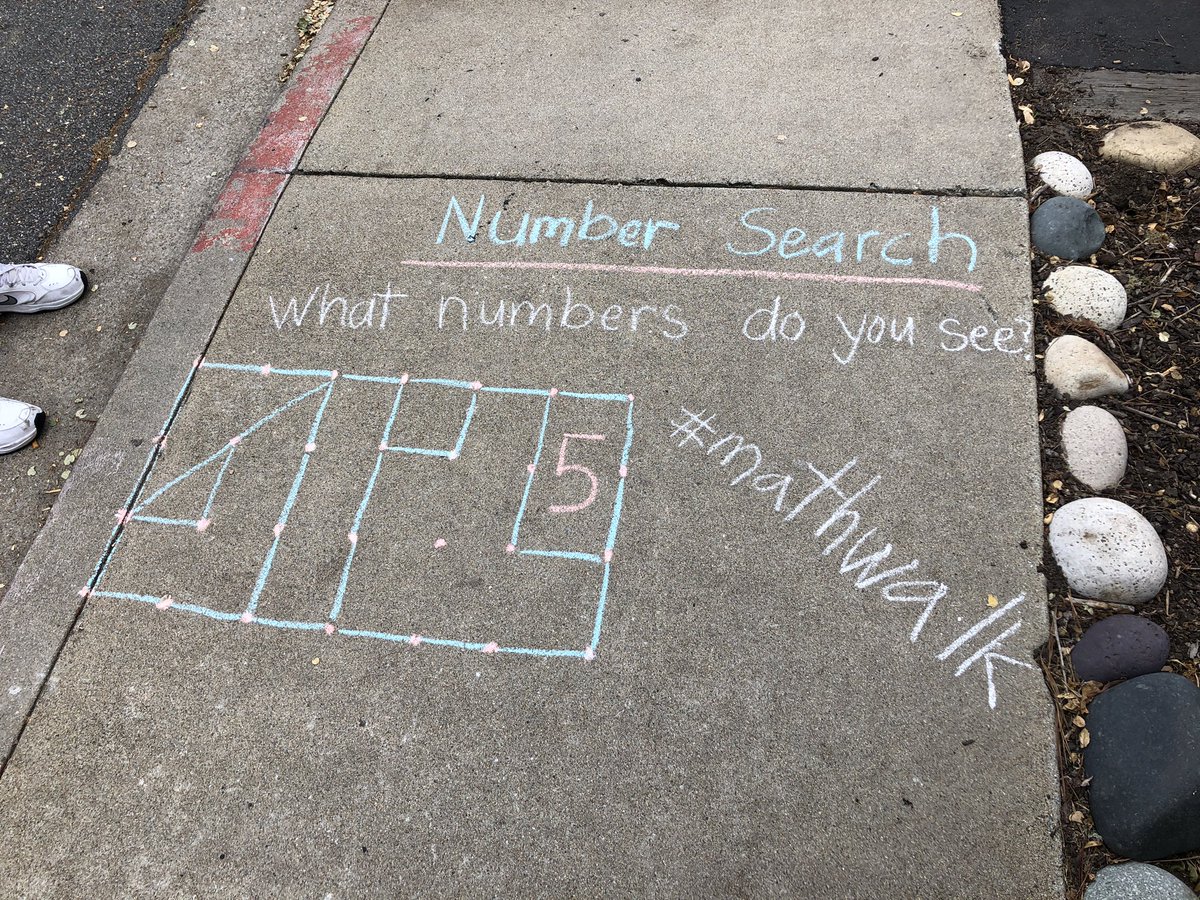 Number Search
What numbers do you see?
5
#mathwalk